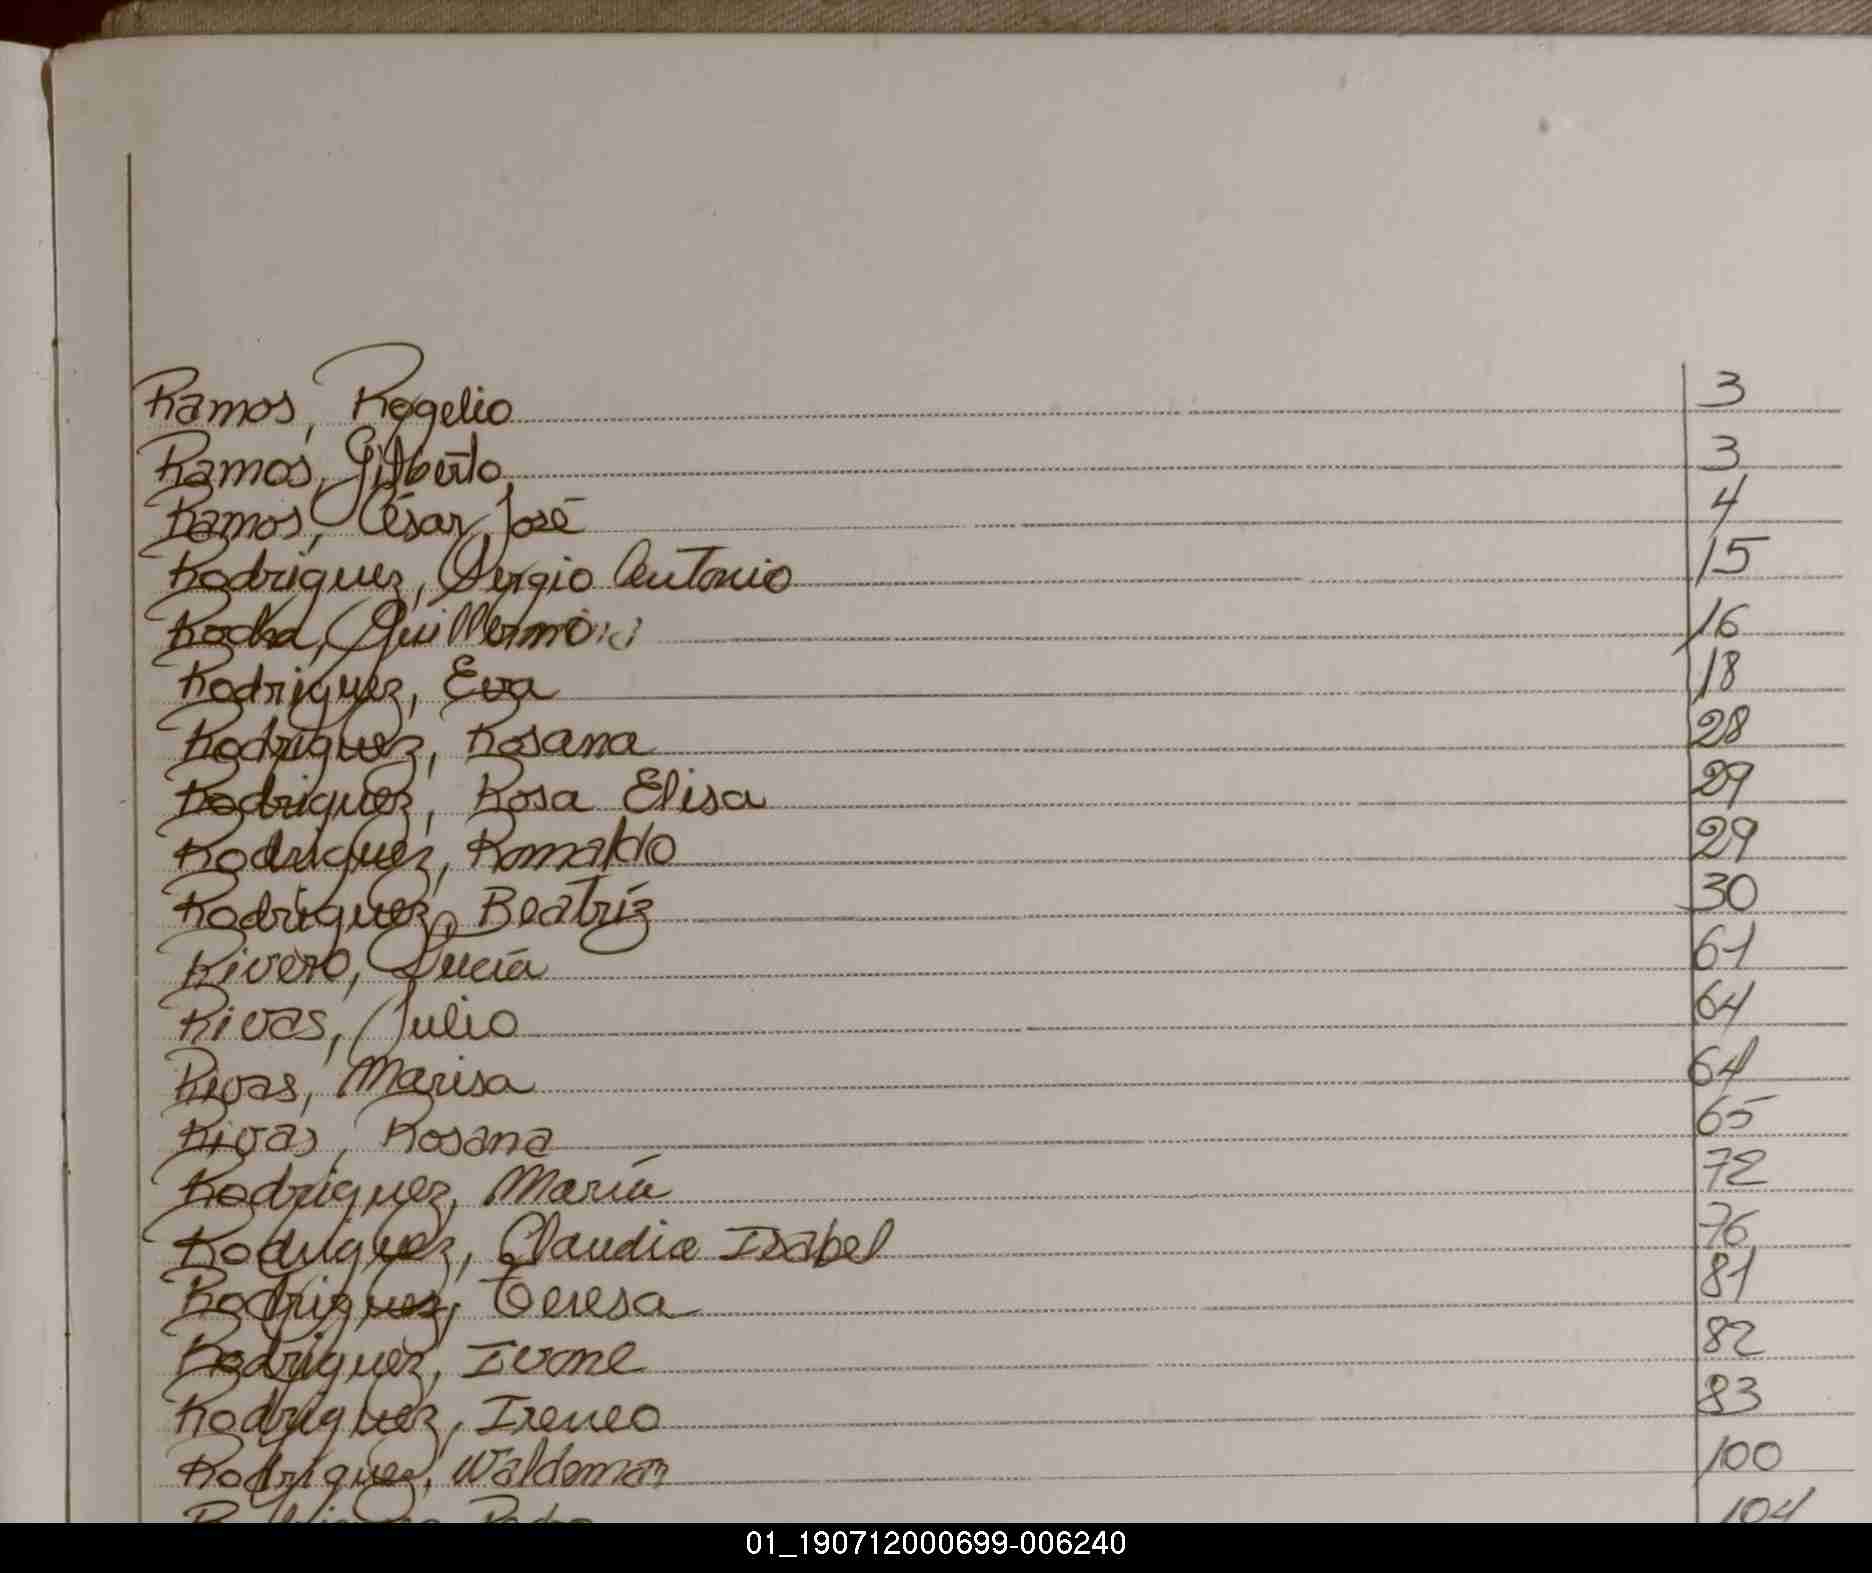 Ramos, Rogelio 3
Ramos, Gilberto 3
Ramos, César José 4
Rodriguez, Sergio Antonio 15
Rocha, Guillermo 16
Rodriguez, Eva 18
Rodriguez, Rosana 28
Rodriguez, Rosa Elisa 29
Rodriguez, Romaldo 29
Rodriguez, Beatríz 30
Rivero, Lucía 61
Rivas, Julio 64
Rivas, Marisa 64
Rivas, Rosana 65
Rodriguez, María 72
Rodriguez, Claudia Isabel 76
Rodriguez, Teresa 81
Rodriguez, Ivone 82
Rodriguez, Ireneo 83
Rodriguez, Waldemar 100
104
01_190712000699-006240